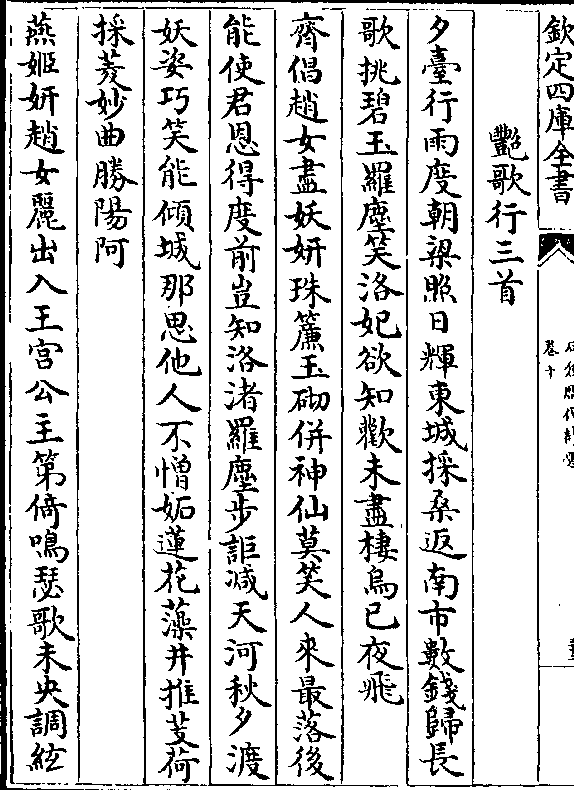 欽定四庫全書
卷十
豔歌行三首
夕臺行雨度朝梁照日輝東城採桑返南市數錢歸長
歌挑碧玉羅塵笑洛妃欲知歡未盡棲烏已夜飛
齊倡趙女盡妖妍珠簾玉砌併神仙莫笑人來最落後
能使君恩得度前豈知洛渚羅塵步詎減天河秋夕渡
妖姿巧笑能傾城那思他人不憎妬蓮花藻井推芰荷
採菱妙曲勝陽阿
燕姬妍趙女麗出入王宮公主第倚鳴瑟歌未央調絃